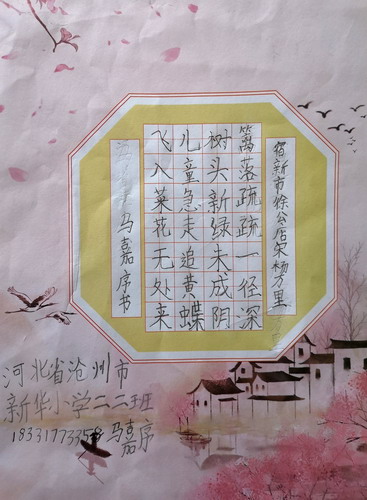 宿新市徐公店宋杨万里
篱落疏疏一径深
树头新绿未成阴
儿童急走追黄蝶
飞入菜花无处来
马嘉序书
河北省沧州市
新华小学二二班
18331773358 马嘉序